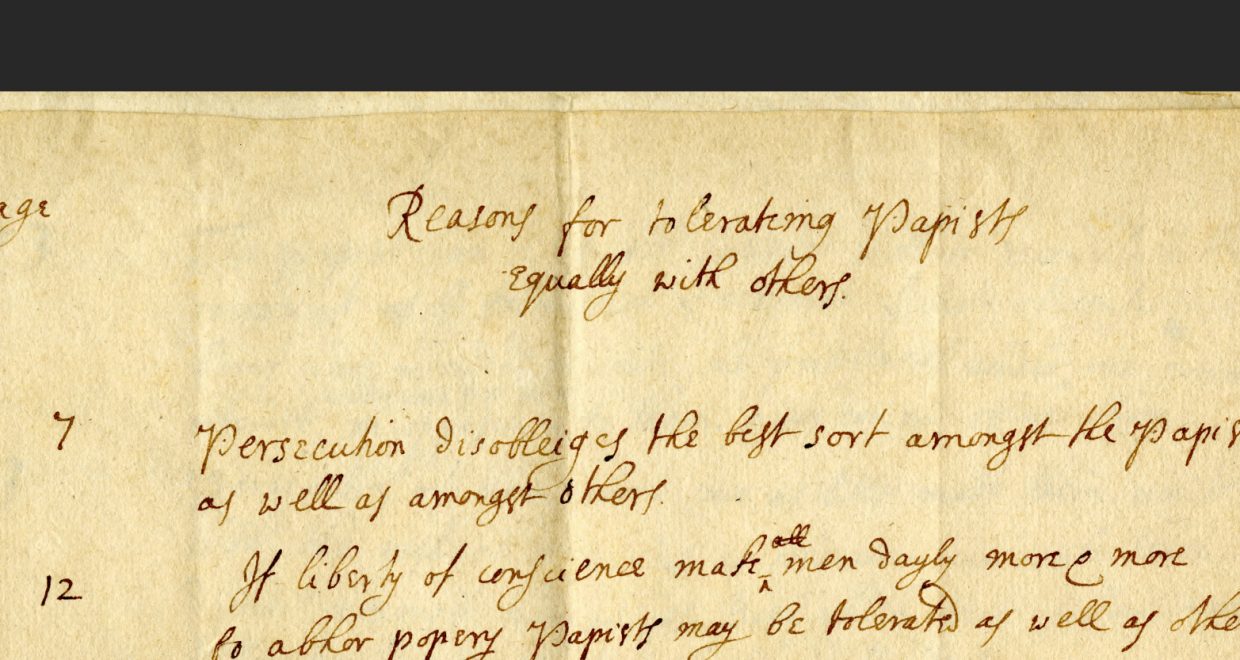 age
Reasons for tolerateing Papists
equally with others.
7 Persecution disobleiges the best sort amongst the Papis
as well as amongst others.
12 If liberty of conscience make all men dayly more & more
to abhor popery Papists may be tolerated as well as othe